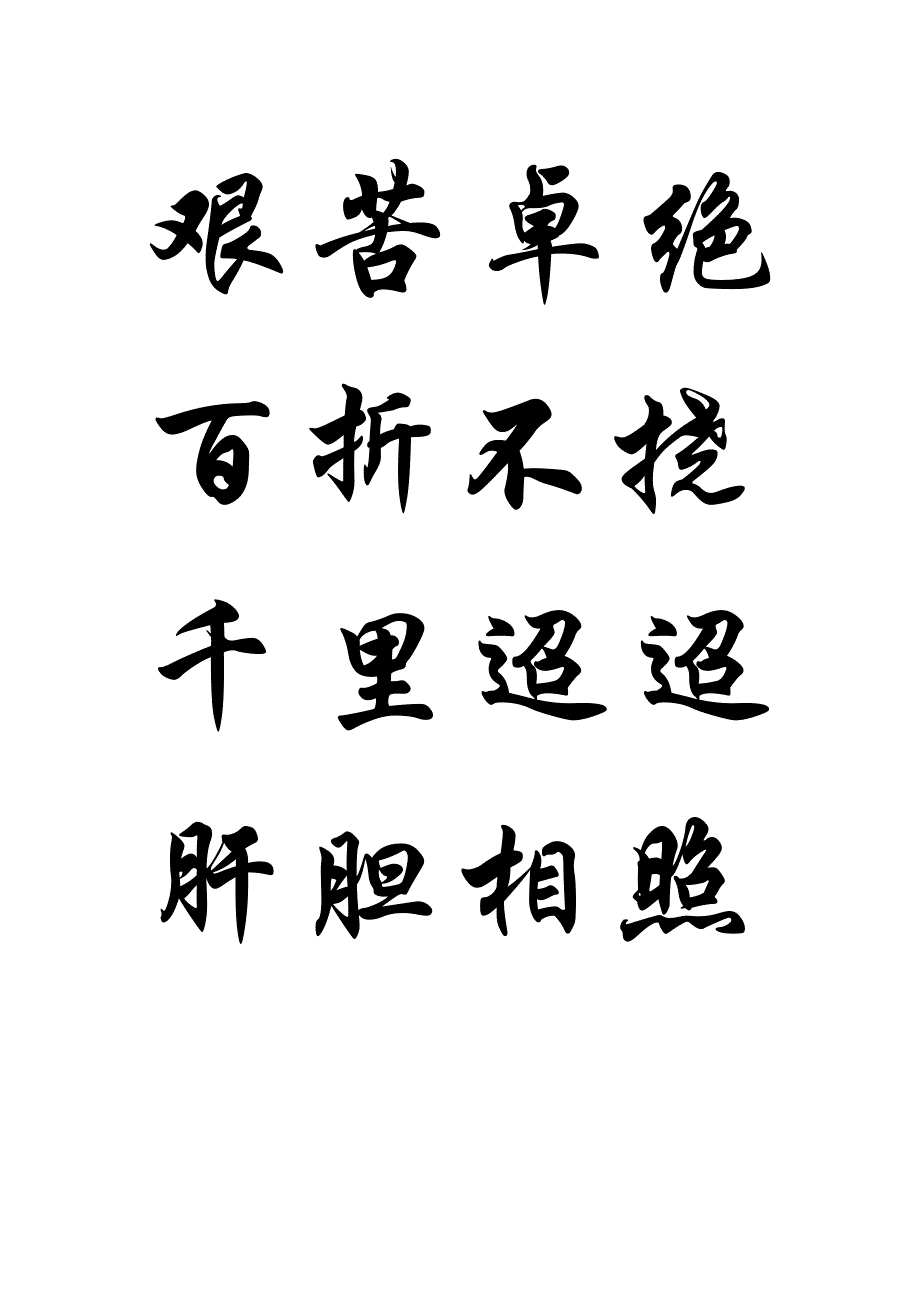 艰苦卓绝
百折不挠
千里迢迢
肝胆相照